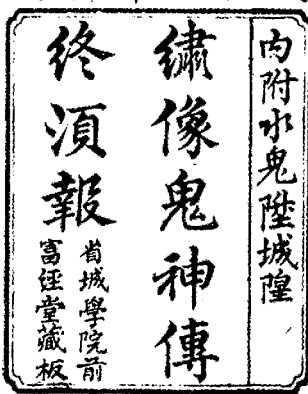 內附水鬼陞城隍
繡像鬼神傳
終須報
省城學院前
富經堂藏板